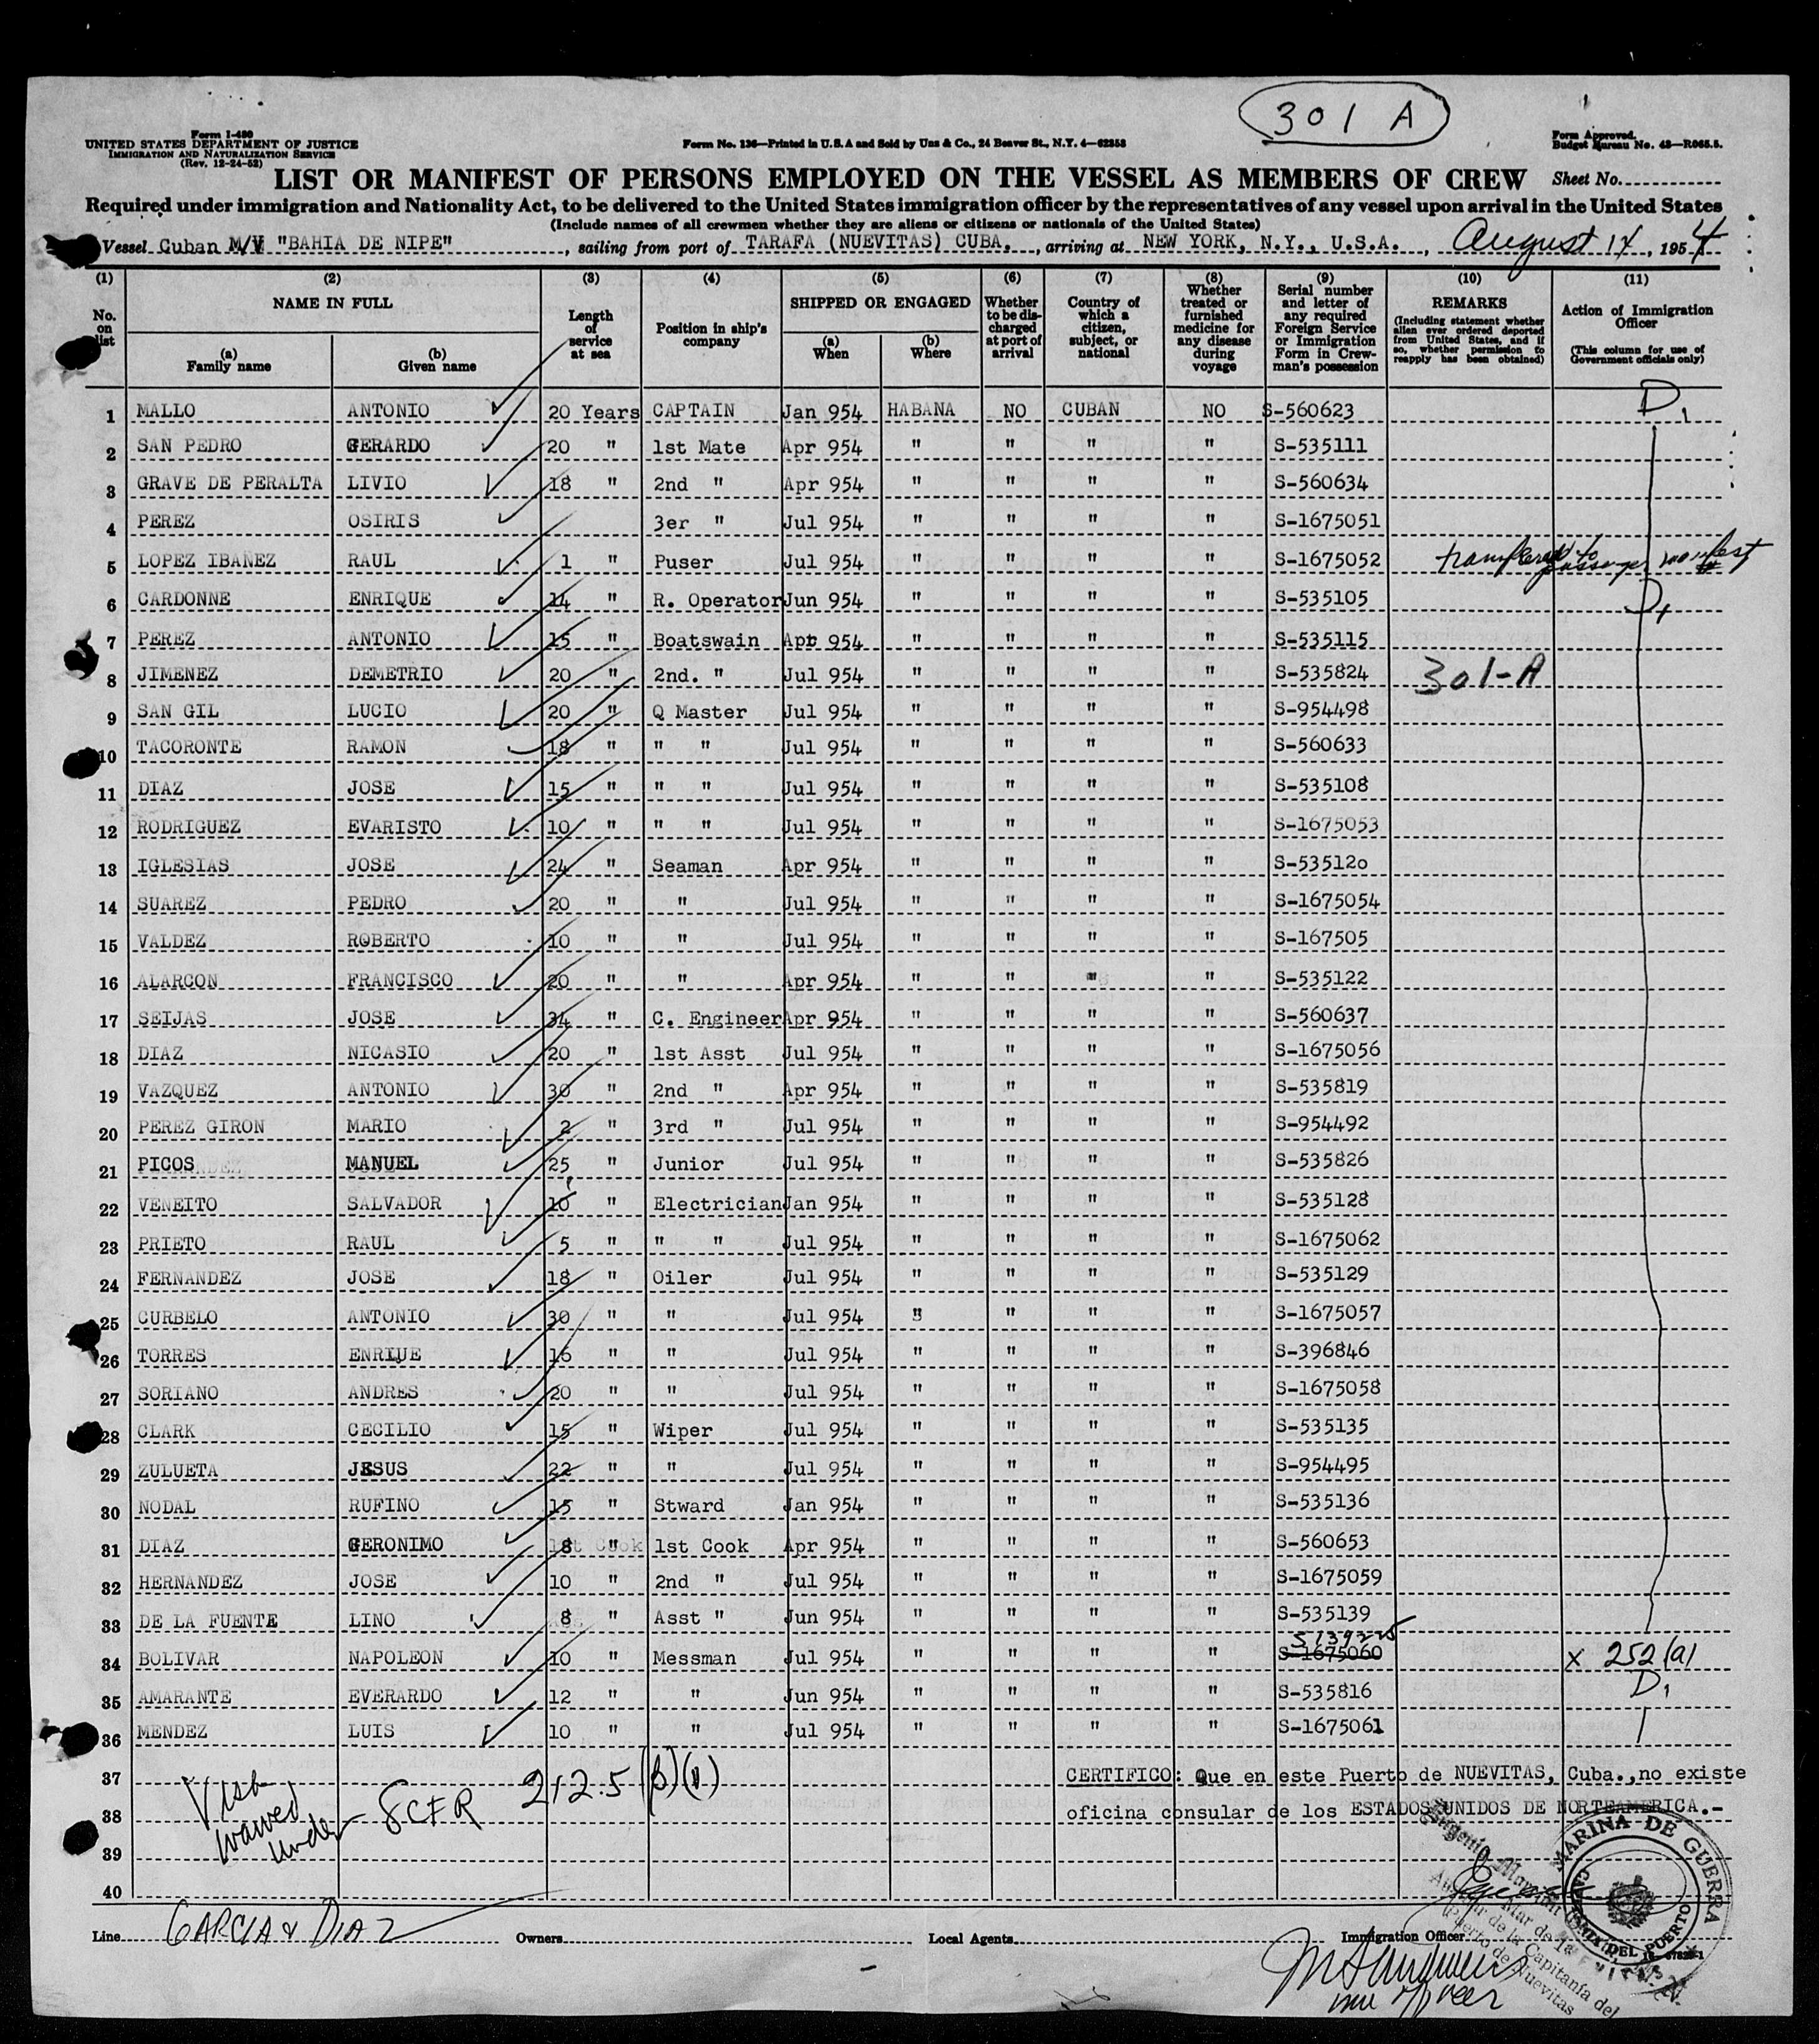 301 A
Form I-480
UNITED STATES DEPARTMENT OF JUSTICE
IMMIGRATION AND NATURALIZATION SERVICE
(Rev. 12-24-52)
Form No. 136—Printed in U.S.A and Sold by Unz & Co., 24 Beaver St., N.Y. 4—62353
Form Approved.
Budget Bureau No. 43—R065.5.
LIST OR MANIFEST OF PERSONS EMPLOYED ON THE VESSEL AS MEMBERS OF CREW Sheet No.
Required under immigration and Nationality Act, to be delivered to the United States immigration officer by the representatives of any vessel upon arrival in the United States
(Include names of all crewmen whether they are aliens or citizens or nationals of the United States)
Vessel Cuban M/V "BAHIA DE NIPE", sailing from port of TARAFA (NUEVITAS) CUBA, arriving at NEW YORK, N.Y., U.S.A., August 14, 1954
(1) (2) (3) (4) (5) (6) (7) (8) (9) (10) (11)
No. on list
NAME IN FULL
(a) Family name
(b) Given name
Length of service at sea
Position in ship's company
SHIPPED OR ENGAGED
(a) When
(b) Where
Whether to be discharged at port of arrival
Country of which a citizen, subject, or national
Whether treated or furnished medicine for any disease during voyage
Serial number and letter of any required Foreign Service or Immigration Form in Crewman's possession
REMARKS
(Including statement whether alien ever ordered deported from United States, and if so, whether permission to reapply has been obtained)
Action of Immigration Officer
(This column for use of Government officials only)
1 MALLO ANTONIO 20 Years CAPTAIN Jan 954 HABANA NO CUBAN NO S-560623 D1
2 SAN PEDRO GERARDO 20 " 1st Mate Apr 954 " " " " S-535111
3 GRAVE DE PERALTA LIVIO 18 " 2nd " Apr 954 " " " " S-560634
4 PEREZ OSIRIS 3er " Jul 954 " " " " S-1675051
5 LOPEZ IBAÑEZ RAUL 1 " Puser Jul 954 " " " " S-1675052 transfered to passenger manifest
6 CARDONNE ENRIQUE 14 " R. Operator Jun 954 " " " " S-535105 D1
7 PEREZ ANTONIO 15 " Boatswain Apr 954 " " " " S-535115
8 JIMENEZ DEMETRIO 20 " 2nd. " Jul 954 " " " " S-535824 301-A
9 SAN GIL LUCIO 20 " Q Master Jul 954 " " " " S-954498
10 TACORONTE RAMON 18 " " " Jul 954 " " " " S-560633
11 DIAZ JOSE 15 " " " Jul 954 " " " " S-535108
12 RODRIGUEZ EVARISTO 10 " " " Jul 954 " " " " S-1675053
13 IGLESIAS JOSE 24 " Seaman Apr 954 " " " " S-53512o
14 SUAREZ PEDRO 20 " " Jul 954 " " " " S-1675054
15 VALDEZ ROBERTO 10 " " Jul 954 " " " " S-167505
16 ALARCON FRANCISCO 20 " " Apr 954 " " " " S-535122
17 SEIJAS JOSE 34 " C. Engineer Apr 954 " " " " S-560637
18 DIAZ NICASIO 20 " 1st Asst Jul 954 " " " " S-1675056
19 VAZQUEZ ANTONIO 30 " 2nd " Apr 954 " " " " S-535819
20 PEREZ GIRON MARIO 2 " 3rd " Jul 954 " " " " S-954492
21 PICOS MANUEL 25 " Junior Jul 954 " " " " S-535826
22 VENEITO SALVADOR 10 " Electrician Jan 954 " " " " S-535128
23 PRIETO RAUL 5 " " " Jul 954 " " " " S-1675062
24 FERNANDEZ JOSE 18 " Oiler Jul 954 " " " " S-535129
25 CURBELO ANTONIO 30 " " Jul 954 " " " S-1675057
26 TORRES ENRIUE 16 " " Jul 954 " " " " S-396846
27 SORIANO ANDRES 20 " " Jul 954 " " " " S-1675058
28 CLARK CECILIO 15 " Wiper Jul 954 " " " " S-535135
29 ZULUETA JESUS 22 " " Jul 954 " " " " S-954495
30 NODAL RUFINO 15 " Stward Jan 954 " " " " S-535136
31 DIAZ GERONIMO 8 " 1st Cook Apr 954 " " " " S-560653
32 HERNANDEZ JOSE 10 " 2nd " Jul 954 " " " " S-1675059
33 DE LA FUENTE LINO 8 " Asst " Jun 954 " " " " S-535139
34 BOLIVAR NAPOLEON 10 " Messman Jul 954 " " " " S-1675060 x 252(a)
35 AMARANTE EVERARDO 12 " " Jun 954 " " " " S-535816 D1
36 MENDEZ LUIS 10 " " Jul 954 " " " " S-1675061
37
38
39
40
Visa waived under 8 CFR 212.5 (b)(1)
CERTIFICO: Que en este Puerto de NUEVITAS, Cuba.,no existe
oficina consular de los ESTADOS UNIDOS DE NORTEAMERICA.-
MARINA DE GUERRA
CAPITANIA DEL PUERTO
Auxiliar de la Capitanía del
Puerto de Nuevitas
Line GARCIA & DIAZ Owners Local Agents Immigration Officer
imm officer